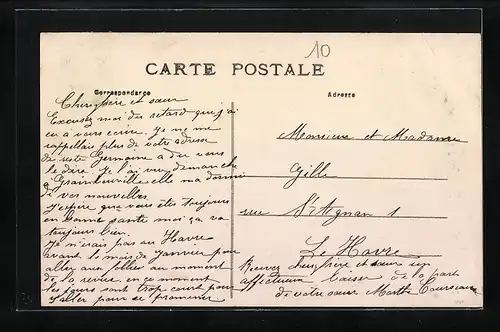 10
CARTE POSTALE
Correspondance
Adresse
Cher frère et sœur
Excusez moi du retard que j'ai
eu a vous ecrire. Je ne me
rappellais plus de votre adresse
du reste Germaine a du vous
le dire. Je l'ai vu dimanche
a Grainville elle ma donné
de vos nouvelles.
J'espère que vous êtes toujours
en bonne santé moi ça va
toujours bien.
Je n'irais pas au Havre
avant le mois de Janvier pour
aller aux au moment
de la revue. en ce moment
les jours sont trop court pour
J'aller pour se promener
Monsieur et Madame
Gille
rue St Agnan 1
Le Havre
Recevez cher frère et sœur un
affectueux baiser de la part
de votre sœur Marthe